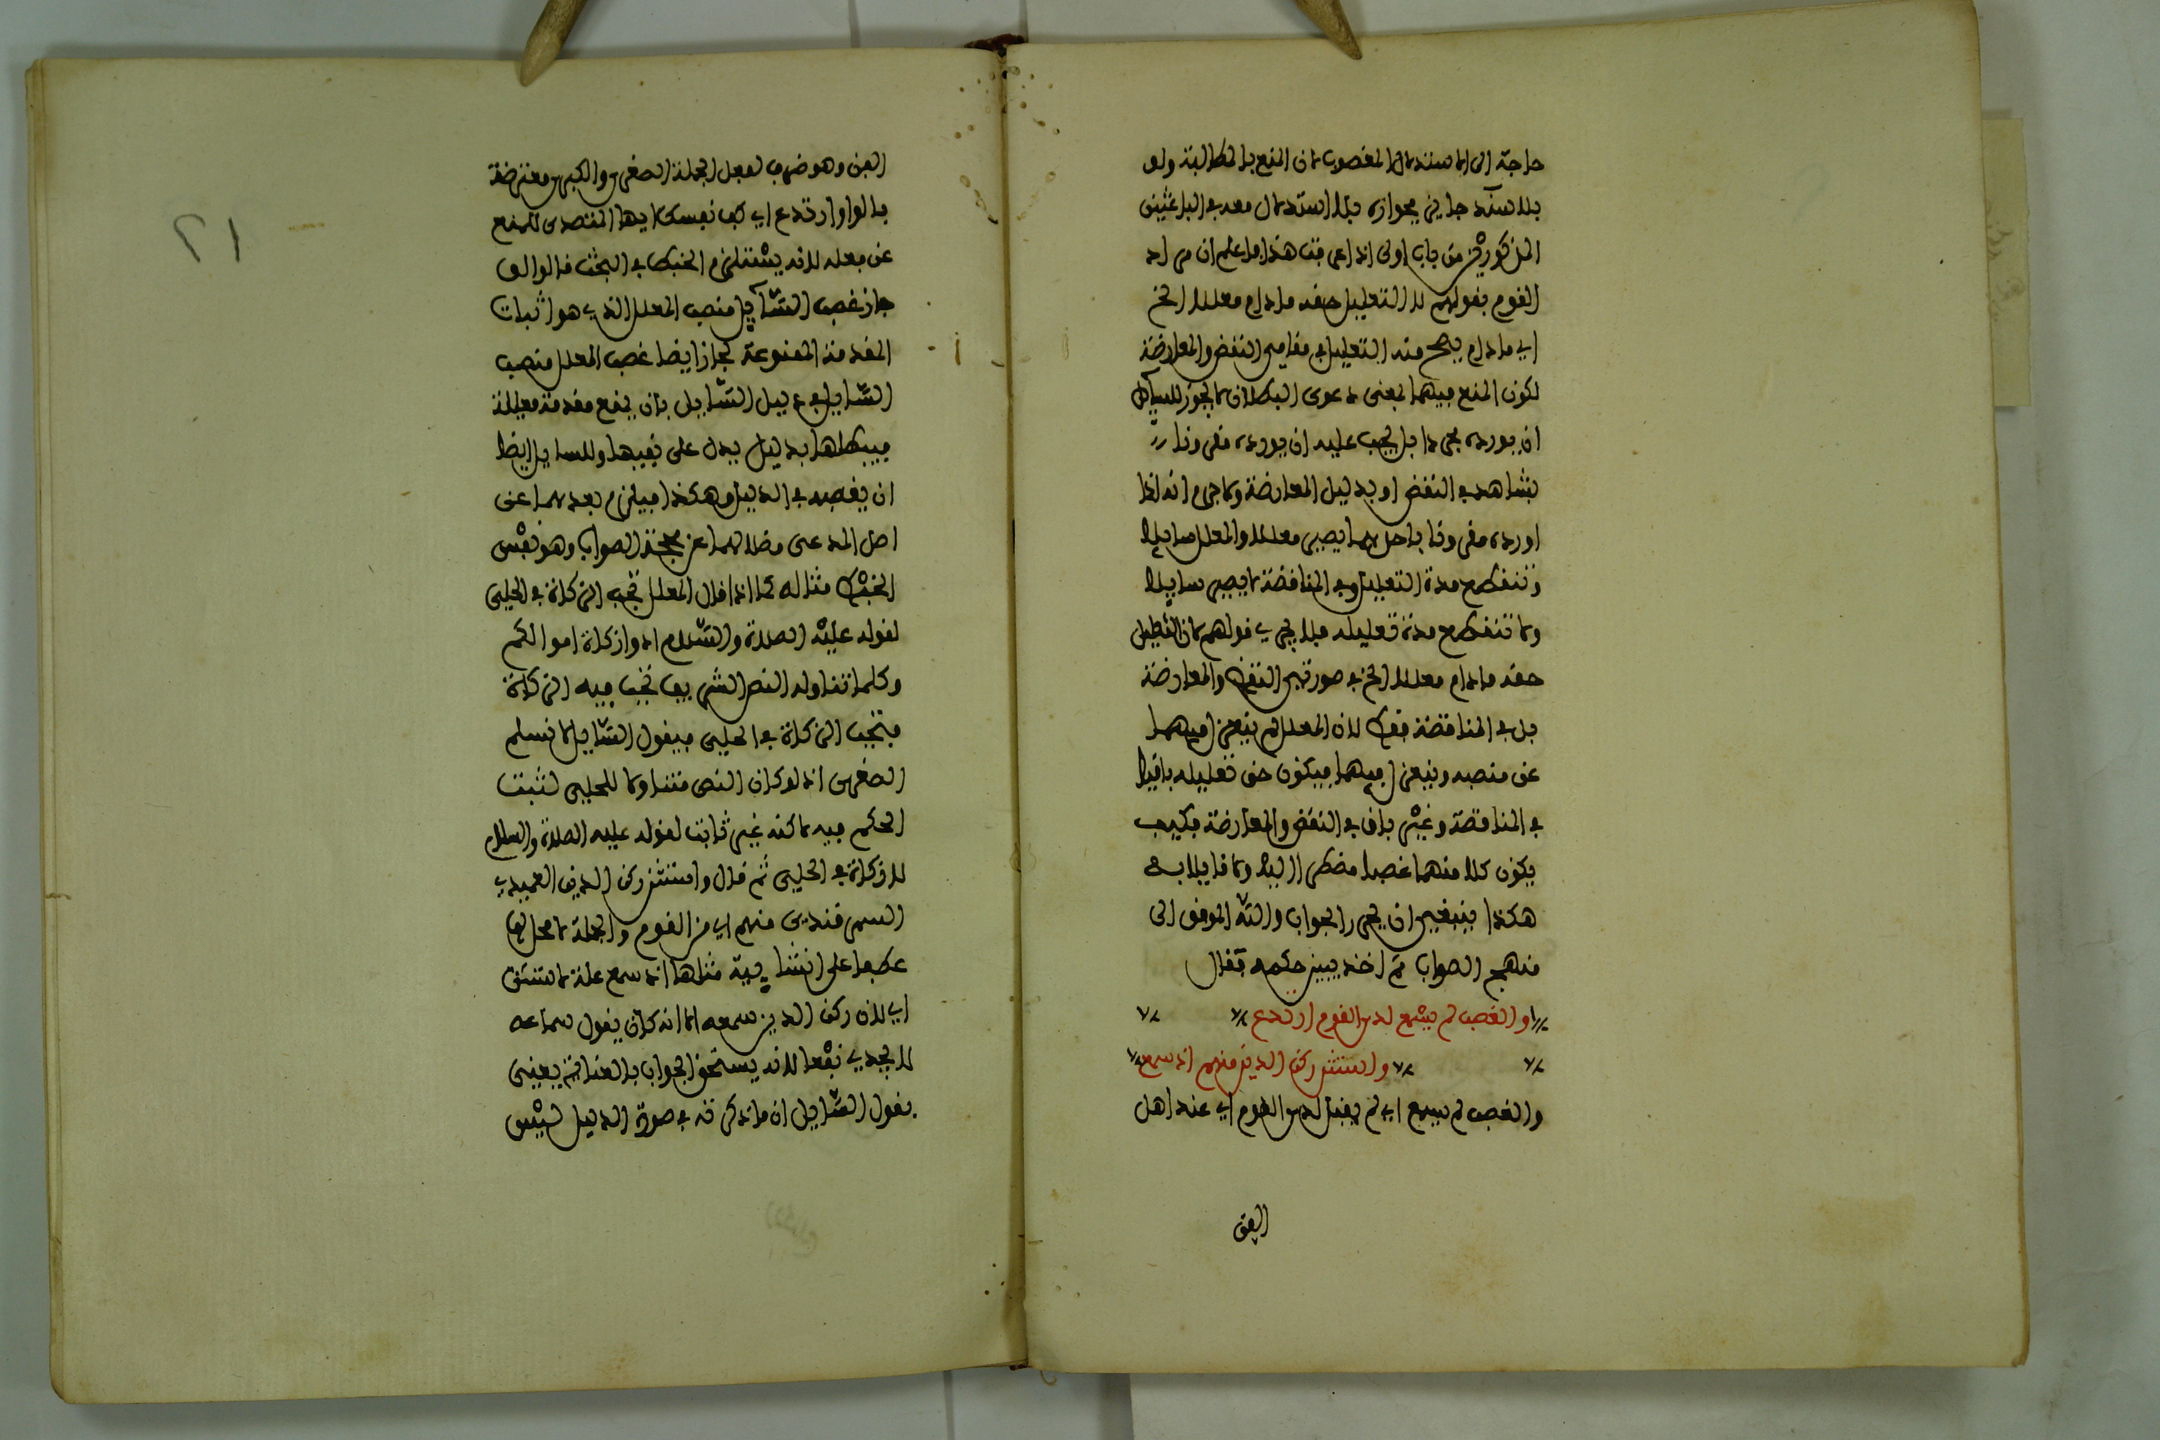 حاجة الى الاستدلال المغصوب لان المنع بالمطالبة ولو
بلا سند جايز بجوازه بلا استدلال معه في البا عثين
المذكورين من باب اولى اذا عرفت هذا فاعلم ان مراد
القوم بقولهم لان التعليل حقه مادام معللا الخ
اي مادام يصح منه التعليل في مقامي النقض والمعارضة
لكون المنع فيهما بمعنى دعوى البطلان لا يجوز للسايل
ان يورده مجردا بل يجب عليه ان يورده مقرونا
بشاهد في النقض او بدليل المعارضة ولا جرم انه اذا
اورده مقرونا باحدهما يصير معللا والمعلل سايلا
وتنقطع مدة التعليل وفي المناقضة لا يصير سايلا
ولا تنقطع مدة تعليله فلا يجري قولهم لان التعليل
حقه مادام معللا الخ في صورتي النقض والمعارضة
بل في المناقضة فقط لان المعلل لم ينعزل فيها
عن منصبه وينعزل فيهما فيكون حق تعليله باقيا
في المناقضة وغير باق في النقض والمعارضة فكيف
يكون كلا منهما غصبا مضطرا اليه ولا قايلا به
هكذا ينبغي ان يحرر الجواب والله الموفق الى
منهج الصواب ثم اخذ يبين حكمه فقال
والغصب لم يسمع لدى القوم ارتدع
واستثن ركن الدين منهم اذ سمع
والغصب لم يسمع اي لم يقبل لدى القوم اي عند اهل
الفن
الفن وهو ضرب لفعل الجملة الصغرى والكبرى معترضة
بالواو ارتدع اي كف نفسك ايها المتصدي للمنع
عن فعله لانه يستلزم الخبط في البحث قالوا لو
جاز غصب السّايل منصب المعلل الذي هو اثبات
المقدمة الممنوعة لجاز ايضا غصب المعلل منصب
السّايل في دليل السّايل بان يمنع مقدمة معللة
فيبطلها بدليل يدل على نفيها وللسايل ايضا
ان يغصبه في الدليل وهكذا فيلزم بعدهما عن
اصل المدعى وضلالهما عن محجة الصواب وهو نفس
الخبط مثاله كما اذا قال المعلل تجب الزكاة في الحلي
لقوله عليه الصلاة والسّلام ادوا زكاة اموالكم
وكلما تناوله النص الشريف تجب فيه الزكاة
فتجب الزكاة في الحلي فيقول السّايل لا نسلم
الصغرى اذ لو كان النص متناولا للحلي لثبت
الحكم فيه لاكنه غير ثابت لقوله عليه الصلاة والسلام
لا زكاة في الحلي ثم قال واستثن ركن الدين العميدي
السمرقندي منهم اي من القوم والجملة لا محل لها
عطفا على انشايية مثلها اذ سمع علة لاستثن
اي لان ركن الدين سمعه الا انه كان يقول سماعه
لا يجدي نفعا لانه يستحق الجواب بالعناية يعني
يقول السّايل ان ما ذكرته في صورة الدليل ليس